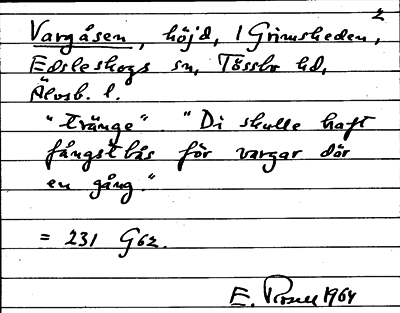 2
Vargåsen, höjd, i Grimsheden,
Edsleskogs sn, Tössbo hd,
Älvsb. l.
"tränge". "Di skulle haft
fångstbås för vargar där
en gång."
= 231 G62.
E. 1964